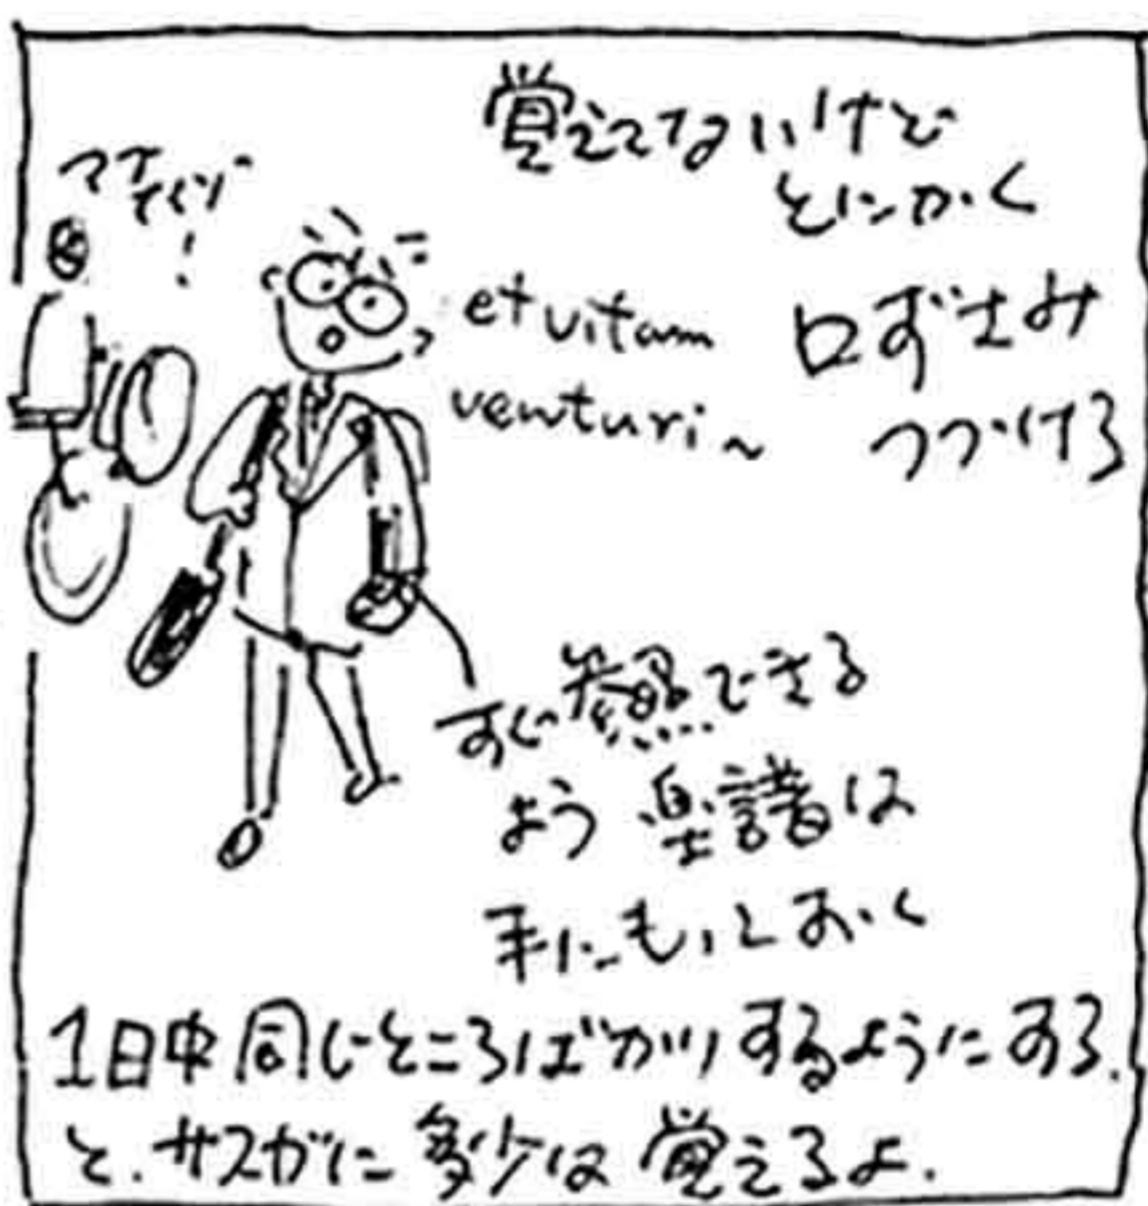 覚えてないけど
とにかく
口ずさみ
つづける
et vitam
venturi~
すぐ参照できる
よう楽譜は
手にもっとおく
1日中同じところばかりするようにする.
と.サスガに多少は覚えるよ.